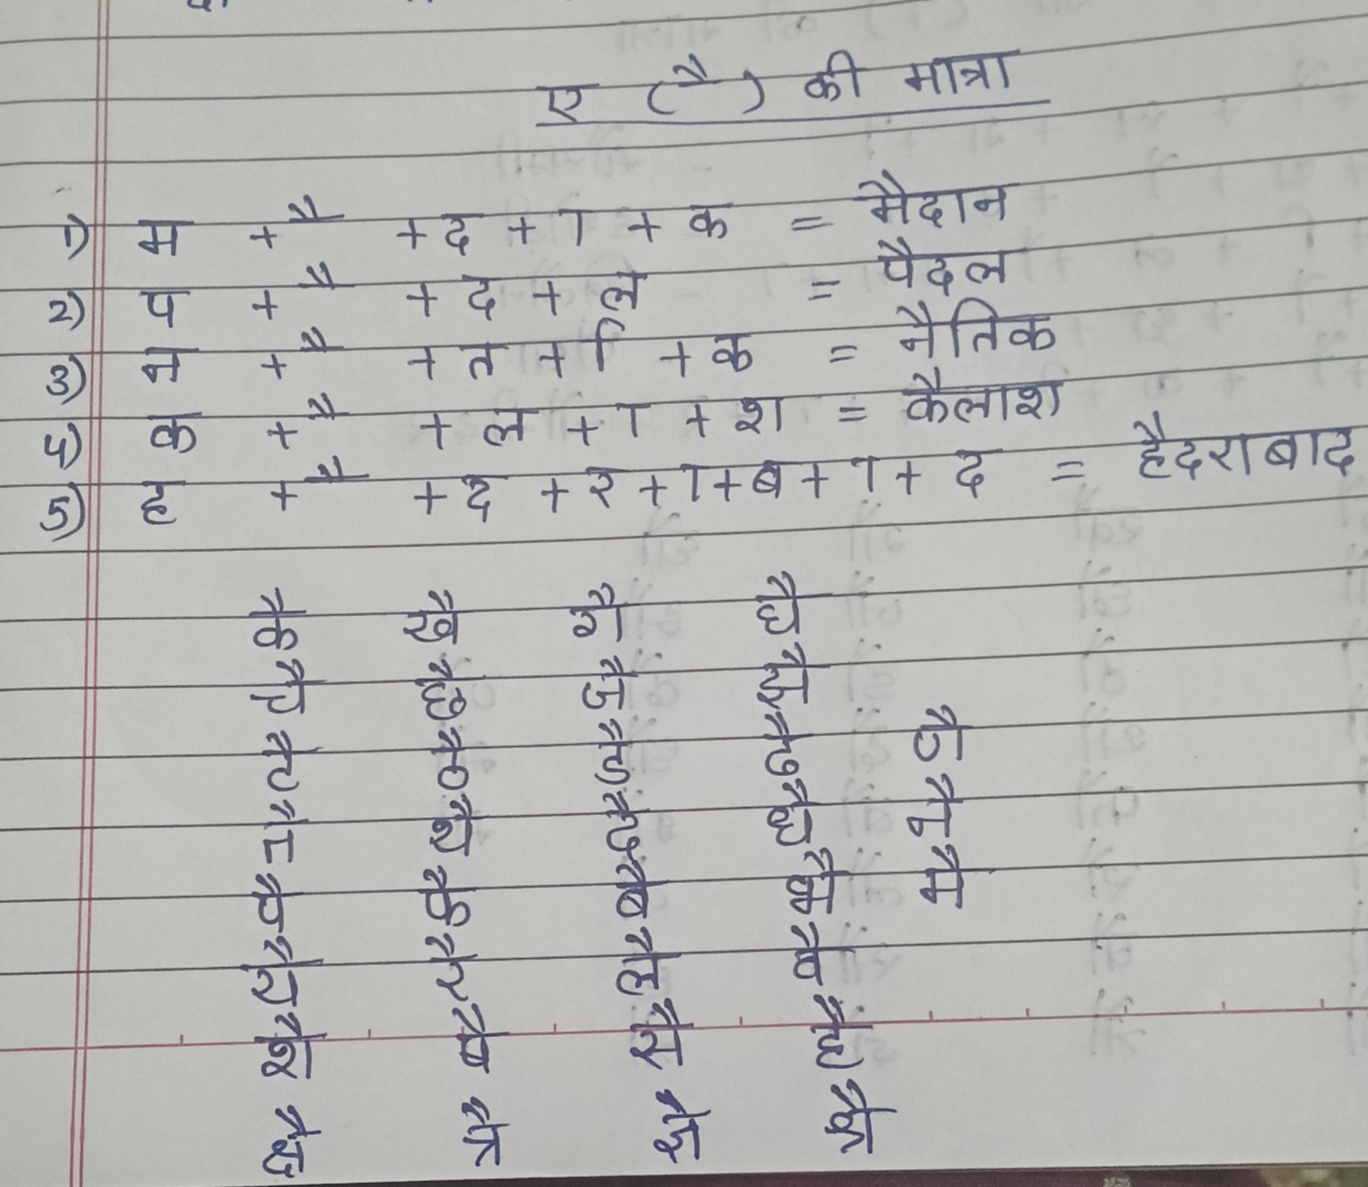 ए (ै) की मात्रा
1) म + ै + द + ा + क = मैदान
2) प + ै + द + ल = पैदल
3) न + ै + त + ि + क = नैतिक
4) क + ै + ल + ा + श = कैलाश
5) ह + ै + द + र + ा + ब + ा + द = हैदराबाद
कै खै गै घै
चै छै जै झै
टै ठै डै ढै णै
तै थै दै धै नै
पै फै बै भै मै
यै रै लै वै
शै षै सै है
क्षै त्रै ज्ञै